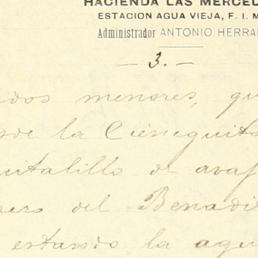 HACIENDA LAS MERCED
ESTACION AGUA VIEJA, F. I. M
Administrador ANTONIO HERRA
— 3. —
dos menores, qu
de la Cieneguita
talillo de
del Benadi
estando la agu